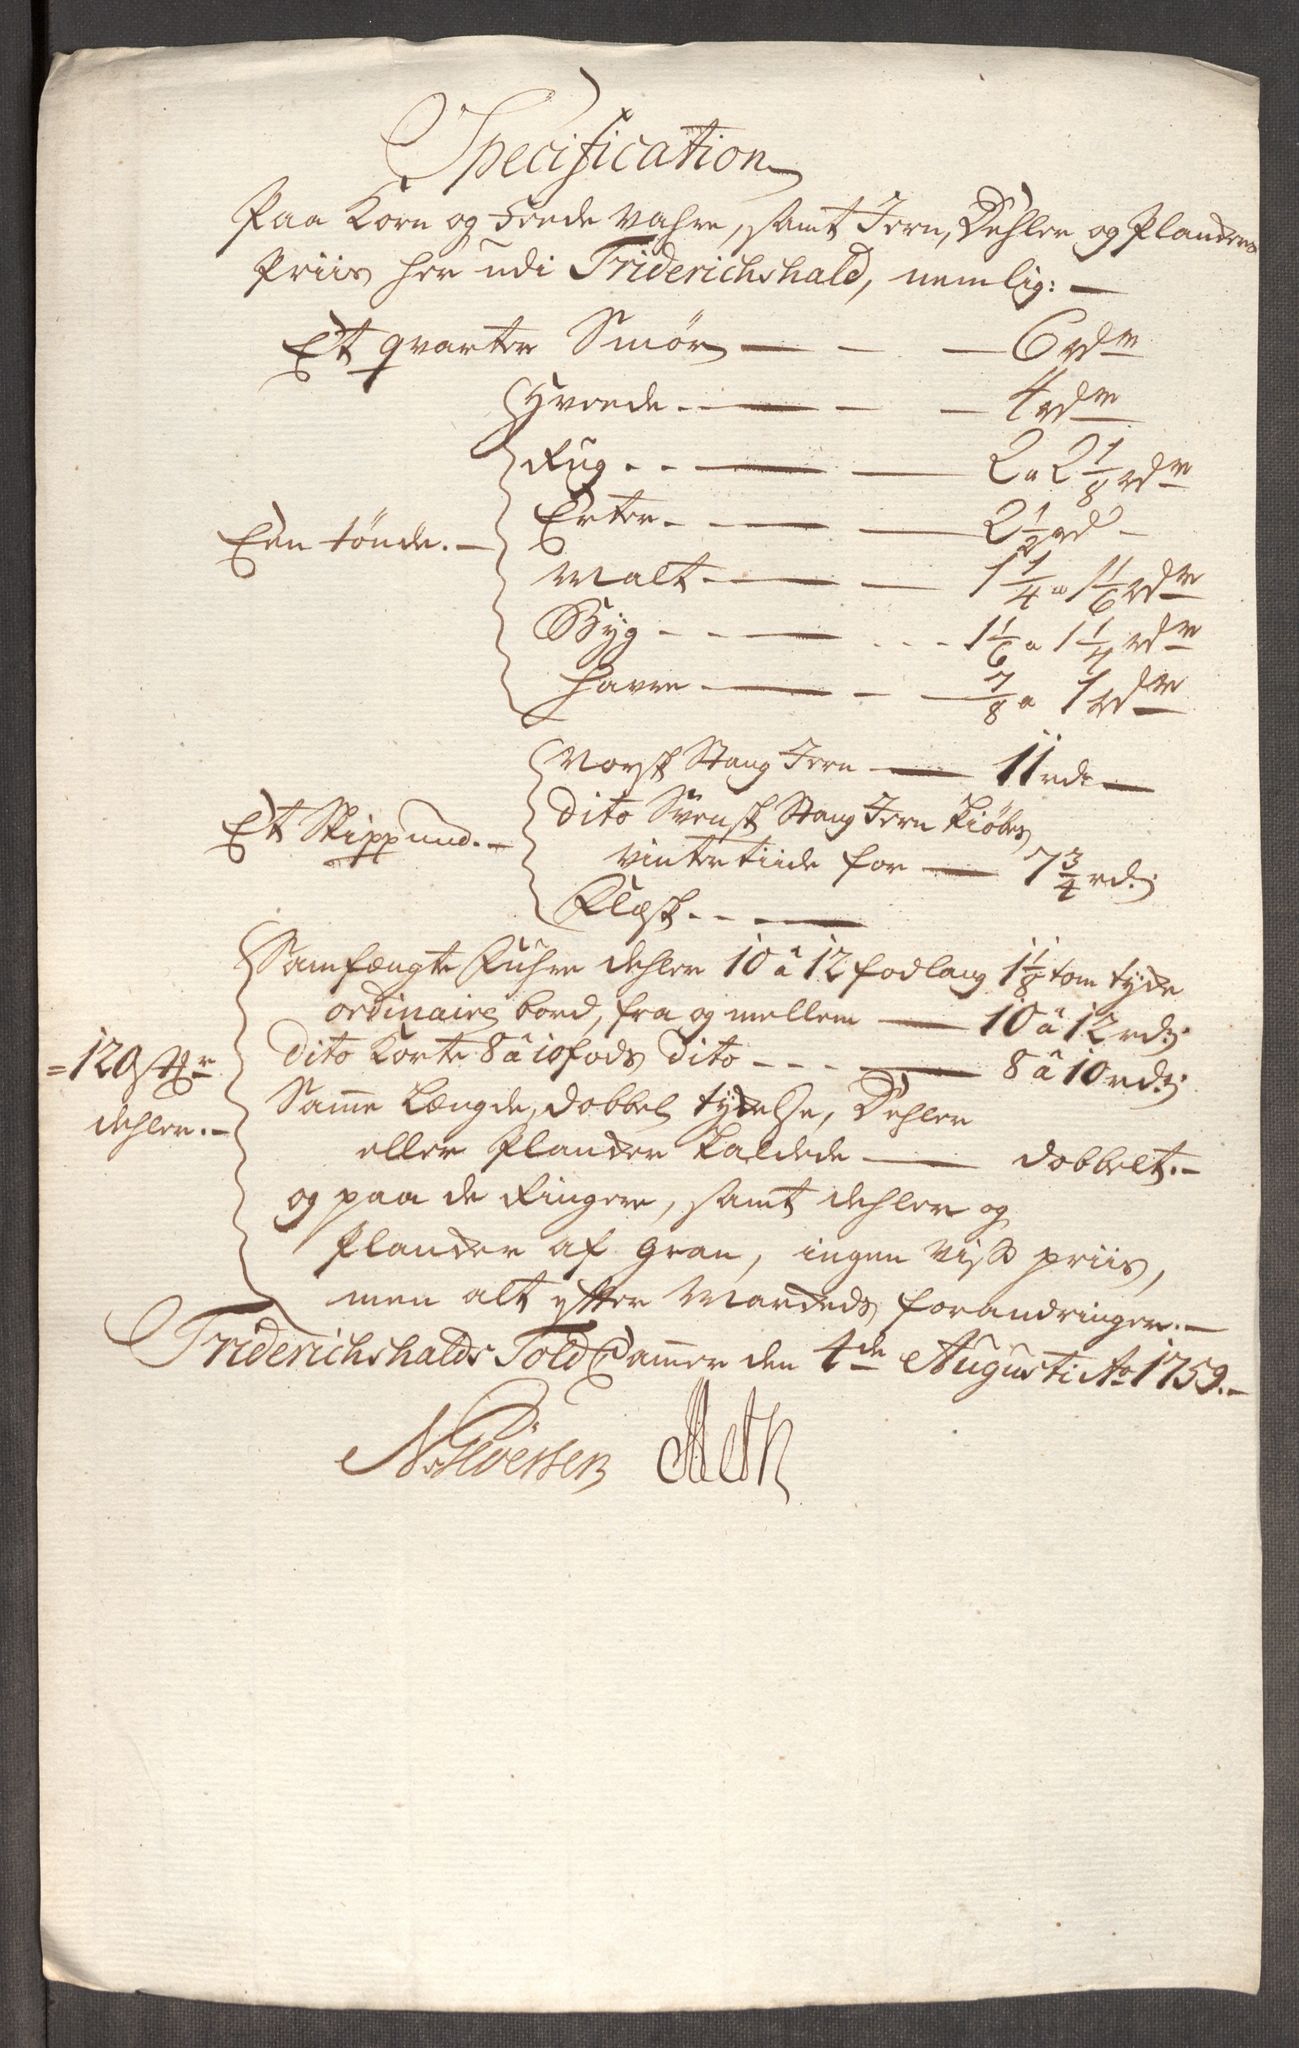 Specification
Paa Korn og Feede Vahre, samt Jern, Dehler og Planckers
Priis her udi Friderichshald, nemlig: —
Et qvarter Smör — — — 6 rdlr
Hveede. — — — 4 rdlr
Rug. — — 2 a 2 1/8 rdlr
Erter. — — 2 1/2 rd -
Een tönde. —
Malt. — — 1 1/4 a 1 1/6 rdlr
Byg - - — - - - 1 1/6 a 1 1/4 rdlr
Havre — — — 7/8 a 1 rdlr
Norsk Stang Jern — 11 rdr —
Et Skippund. —
Dito Svensk Stang Jern kiöbes
vintertiide for — 7 3/4 rd:
Flæsk. - - —
Samfængte Fuhre dehler 10 â 12 fod lang 1 1/8 tom tyde
ordinaire bord, fra og mellem — 10 â 12 rd:
= 120 stkr
dehler. —
Dito Korte 8 â 10 fods dito - - - — 8 â 10 rd:
Samme Længde, dobbel tydelse, Dehler
eller Plancker kaldede — dobbelt. —
og paa de Ringere, samt dehler og
Plancker af Gran, ingen viss priis,
men alt efter Marckeds forandringer. —
Friderichshalds Told Cammer den 4de Augusti Ao 1759. —